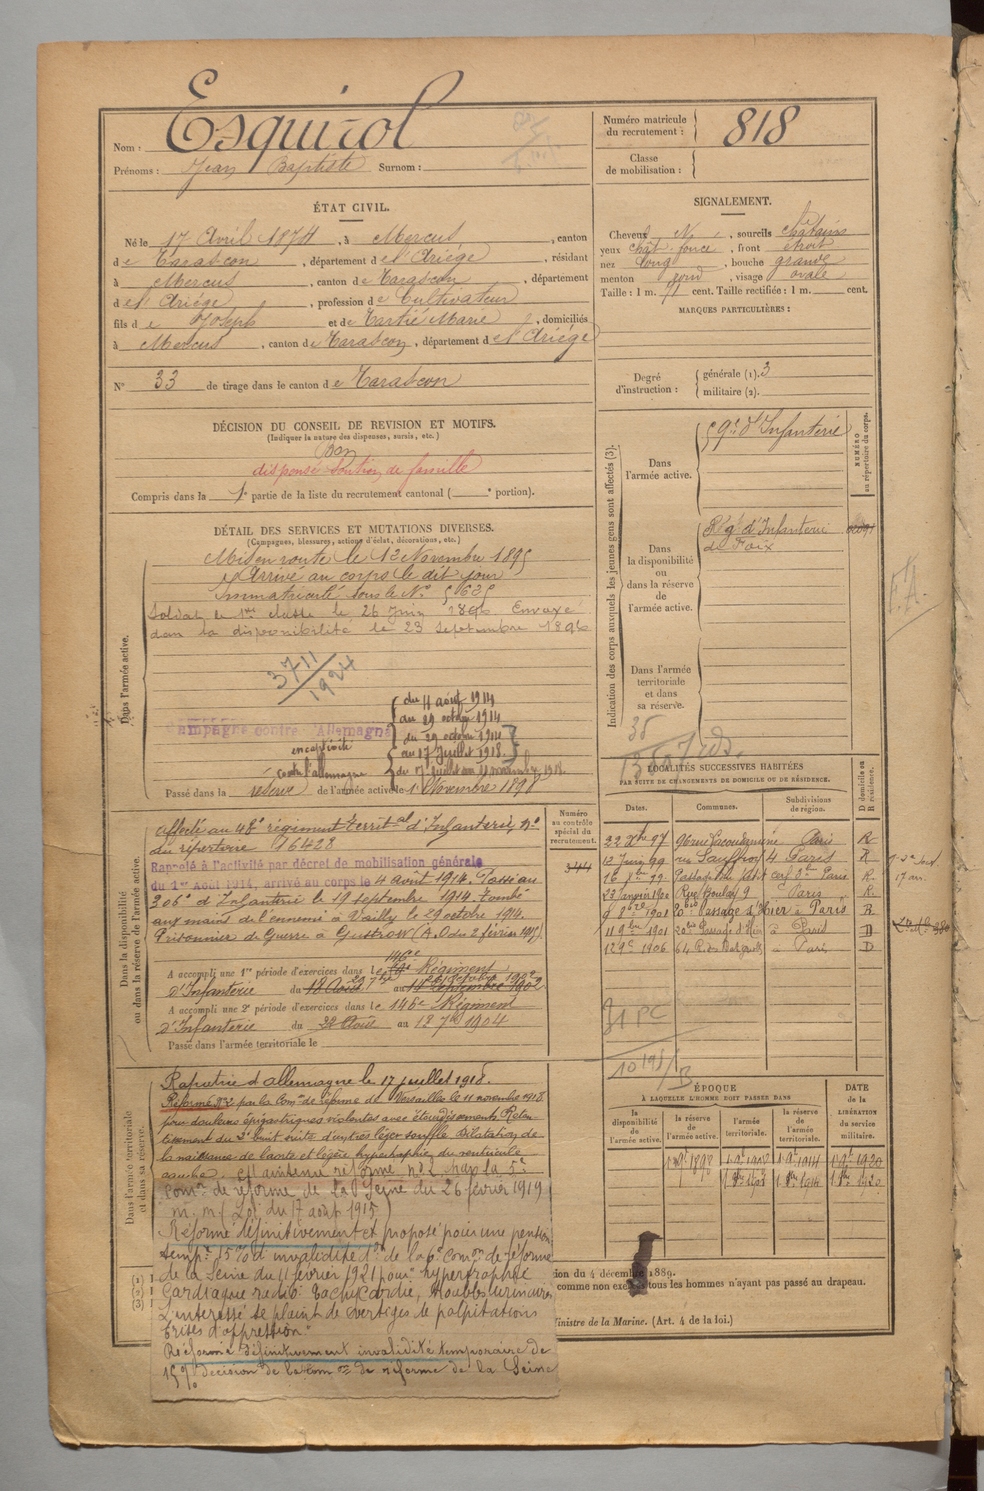 Nom : Esquirol
Prénoms : Jean Baptiste Surnom :
Numéro matricule du recrutement : 818
Classe de mobilisation :
ÉTAT CIVIL.
Né le 17 Avril 1874, à Mercus, canton
de Tarascon, département de l'Ariège, résidant
à Mercus, canton de Tarascon, département
de l'Ariège, profession de Cultivateur
fils de Joseph et de Tartié Marie, domiciliés
à Mercus, canton de Tarascon, département de l'Ariège
N° 33 de tirage dans le canton de Tarascon
SIGNALEMENT.
Cheveux N, sourcils châtains
yeux chât. foncé, front étroit
nez long, bouche grande
menton rond, visage ovale
Taille : 1 m. 71 cent. Taille rectifiée : 1 m. cent.
MARQUES PARTICULIÈRES :
Degré d'instruction : générale (1). 3
militaire (2).
DÉCISION DU CONSEIL DE REVISION ET MOTIFS.
(Indiquer la nature des dispenses, sursis, etc.)
Bon
dispensé soutien de famille
Compris dans la 1e partie de la liste du recrutement cantonal ( e portion).
DÉTAIL DES SERVICES ET MUTATIONS DIVERSES.
(Campagnes, blessures, actions d'éclat, décorations, etc.)
Dans l'armée active.
Mis en route le 12 Novembre 1895
Arrivé au corps le dit jour
Immatriculé sous le N° 5635
Soldat de 1ère classe le 26 Juin 1896 Envoyé
dans la disponibilité le 23 Septembre 1896
3711
1924
Campagne contre l'Allemagne
du 11 août 1914
au 29 octobre 1914
en captivité
du 29 octobre 1914
au 17 Juillet 1918.
contre l'allemagne
Passé dans la réserve de l'armée active le 1er Novembre 1898
Indication des corps auxquels les jeunes gens sont affectés (3).
NUMÉRO au répertoire du corps.
Dans l'armée active.
59e d'Infanterie
Dans la disponibilité ou dans la réserve de l'armée active.
Régt d'Infanterie
de Foix
Dans l'armée territoriale et dans sa réserve.
F.A.
Dans la disponibilité ou dans la réserve de l'armée active.
Numéro au contrôle spécial du recrutement.
344
Affecté au 48e régiment territal d'Infanterie, n°
du répertoire 16428
Rappelé à l'activité par décret de mobilisation générale
du 1er Août 1914, arrivé au corps le 4 août 1914. Passé au
206e d'Infanterie le 19 septembre 1914. Tombé
aux mains de l'ennemi à Vailly le 29 octobre 1914.
Prisonnier de Guerre à Gustrow (A.O du 2 février 1915)
A accompli une 1re période d'exercices dans le 146e Régiment
d'Infanterie du 18 Août au 14 Septembre 1902
A accompli une 2e période d'exercices dans le 146e Régiment
d'Infanterie du 22 Août au 18 7bre 1904
Passé dans l'armée territoriale le
LOCALITÉS SUCCESSIVES HABITÉES
PAR SUITE DE CHANGEMENTS DE DOMICILE OU DE RÉSIDENCE.
Dates. Communes. Subdivisions de région. D domicile ou R résidence.
22 Xbre 97 Paris R
12 Juin 99 rue Sauffroy 4 Paris R
Paris R
23 Janvier 1900 Rue Boulay 9 Paris R
1901 20bis Passage Paris R
11 9bre 1901 20bis Passage Paris D
12 9e 1906 Paris D
Dans l'armée territoriale et dans sa réserve.
Rapatrié d'allemagne le 17 juillet 1918.
Réformé N°2 par la Comon de réforme de Versailles le 11 novembre 1918
pour douleurs épigastriques violentes avec étourdissements Reten-
tissement du 2e bruit suivi d'un très léger souffle Dilatation de
la naissance de l'aorte et légère hypertrophie du ventricule
gauche. Est maintenu réformé n°2 par la 5e
Comon de réforme de la Seine du 26 février 1919
Réformé définitivement et proposé pour une pension
tempre 15% d'invalidité don de la 6e Comon de réforme
de la Seine du 11 février 1921 pour "hypertrophie
cardiaque radio: Tachycardie, troubles urinaires
L'intéressé se plaint de vertiges de palpitations
crises d'oppression"
Réformé définitivement invalidité temporaire de
15% décision de la Comon de réforme de la Seine
ÉPOQUE
À LAQUELLE L'HOMME DOIT PASSER DANS
la disponibilité de l'armée active. la réserve de l'armée active. l'armée territoriale. la réserve de l'armée territoriale.
DATE de la LIBÉRATION du service militaire.
(1)
(2)
(3)
4 décembre 1889.
comme non exe tous les hommes n'ayant pas passé au drapeau.
inistre de la Marine. (Art. 4 de la loi.)